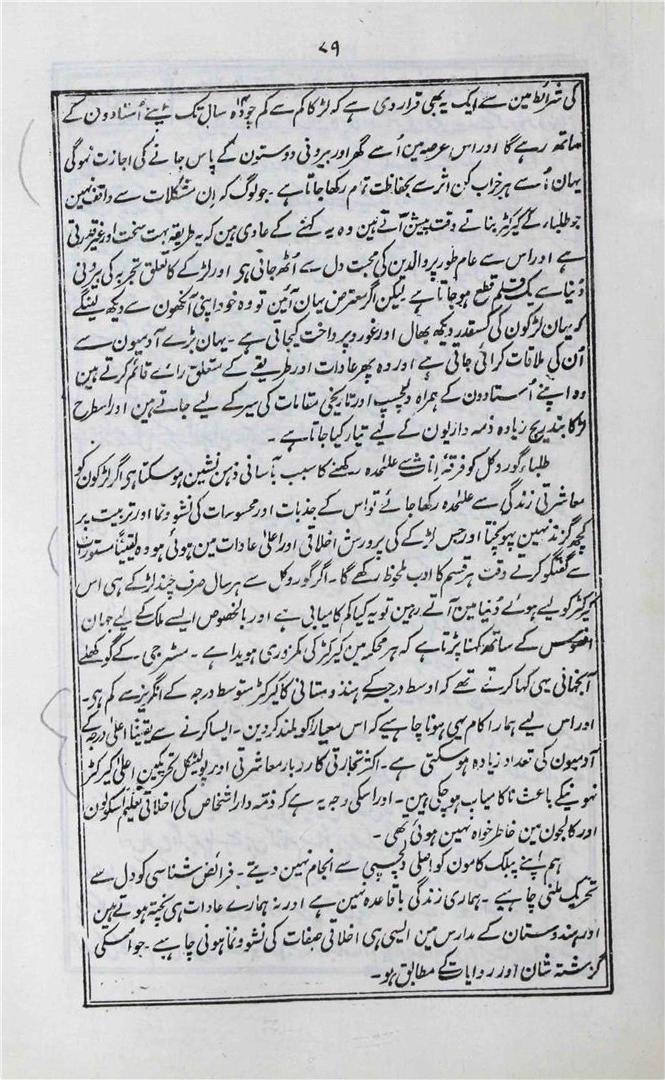 ۷۹
کی شرائط مین سے ایک یہ بھی قرار دی ہے کہ لڑکا کم سے کم چودہ ۱۴ سال تک اپنے اُستادون کے
ساتھ رہے گا اور اس عرصہ مین اُسے گھر اور بیرونی دوستون کے پاس جانے کی اجازت نہوگی
یہان اُسے ہر خراب کن اثر سے بحفاظت تمام رکھا جاتا ہے ۔ جو لوگ کہ اِن مشکلات سے واقف نہین
جو طلباء کے کیرکٹر بناتے وقت پیش آتے ہین وہ یہ کہنے کے عادی ہین کہ یہ طریقہ بہت سخت اور غیر قدرتی
ہے اور اس سے عام طور پر والدین کی محبت دل سے اُٹھ جاتی ہی اور لڑکے کا تعلق تجربہ کی بیرونی
دُنیا سے یک قلم قطع ہو جاتا ہے لیکن اگر معترض یہان آئین تو وہ خود اپنی آنکھون سے دیکھ لینگے
کہ یہان لڑکون کی کسقدر دیکھ بھال اور غور و پرداخت کیجاتی ہے ۔ یہان بڑے آدمیون سے
اُن کی ملاقات کرائی جاتی ہے اور وہ پھر عادات اور طریقے کے متعلق رائے قائم کرتے ہین
وہ اپنے اُستادون کے ہمراہ دلچسپ اور تاریخی مقامات کی سیر کے لیے جاتے ہین اور اسطرح
لڑکا بتدریج زیادہ ذمہ داریون کے لیے تیار کیا جاتا ہے ۔
طلباء گوروکل کو فرقۂ اناث سے علٰحدہ رکھنے کا سبب بآسانی ذہن نشین ہو سکتا ہی اگر لڑکون کو
معاشرتی زندگی سے علٰحدہ رکھا جائے تو اس کے جذبات اور محسوسات کی نشو و نما اور تربیت پر
کچھ گزند نہین پہونچتا اور جس لڑکے کی پرورش اخلاقی اور اعلیٰ عادات مین ہوئی ہو وہ یقیناً مستورات
سے گفتگو کرتے وقت ہر قسم کا ادب ملحوظ رکھے گا ۔ اگر گوروکل سے ہر سال صرف چند لڑکے ہی اس
کیرکٹر کو لیے ہوئے دُنیا مین آتے رہین تو یہ کیا کم کامیابی ہے اور بالخصوص ایسے ملک کے لیے جہان
افسوس کے ساتھ کہنا پڑتا ہے کہ ہر محکمہ مین کیرکٹر کی کمزوری ہویدا ہے ۔ مسٹر جی ۔ کے گوکھلے
آنجہانی یہی کہا کرتے تھے کہ اوسط درجہ کے ہندوستانی کا کیرکٹر متوسط درجہ کے انگریز سے کم ہی ۔
اور اس لیے ہمارا کام یہی ہونا چاہیے کہ اس معیار کو بلند کردین ۔ ایسا کرنے سے یقیناً اعلیٰ درجہ کے
آدمیون کی تعداد زیادہ ہو سکتی ہے ۔ اکثر تجارتی کاروبار معاشرتی اور پولیٹکل تحریکین اعلیٰ کیرکٹر
نہونیکے باعث ناکامیاب ہو چکی ہین ۔ اور اسکی وجہ یہ ہے کہ ذمہ دار اشخاص کی اخلاقی تعلیم اسکولون
اور کالجون مین خاطر خواہ نہین ہوئی تھی ۔
ہم اپنے پبلک کامون کو اصلی دلچسپی سے انجام نہین دیتے ۔ فرائض شناسی کو دل سے
تحریک ملنی چاہیے ۔ ہماری زندگی باقاعدہ نہین ہے اور نہ ہمارے عادات ہی پختہ ہوتے ہین
اور ہندوستان کے مدارس مین ایسی ہی اخلاقی صفات کی نشو و نما ہونی چاہیے ۔ جو اُسکی
گزشتہ شان اور روایات کے مطابق ہو ۔